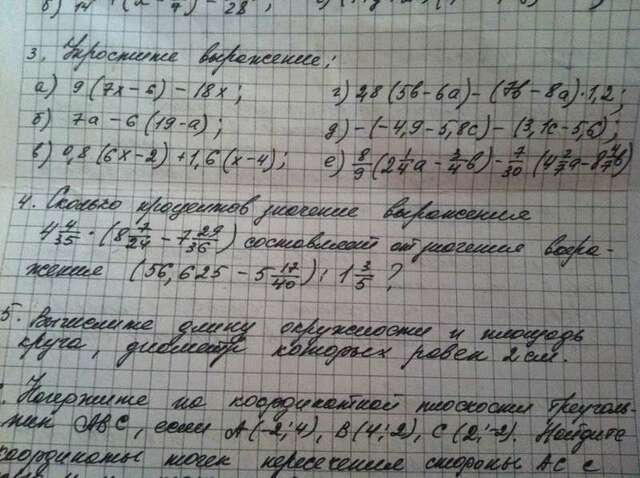 3. Упростите выражение:
а) 9(7x-6)-18x; г) 2,8(5b-6a)-(7b-8a)·1,2;
б) 7a-6(19-a); д) -(-4,9-5,8c)-(3,1c-5,6);
в) 0,8(6x-2)+1,6(x-4); е) 8/9(2 1/4 a - 3/4 b) - 7/30 (4 2/7 a - 8 4/7 b)
4. Сколько процентов значение выражения
4 4/35 · (8 7/24 - 7 29/36) составляет от значения выра-
жения (56,625 - 5 17/40) : 1 3/5 ?
5. Вычислите длину окружности и площадь
круга, диаметр которых равен 2 см.
Постройте на координатной плоскости треуголь-
ник ABC, если A(-2;4), B(4;2), C(2;-2). Найдите
координаты точек пересечения стороны AC с